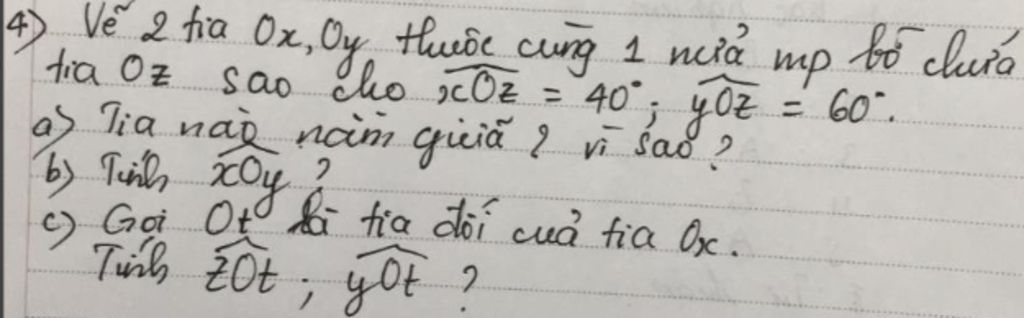 4) Vẽ 2 tia Ox, Oy thuộc cùng 1 nửa mp bờ chứa
tia Oz sao cho xOz = 40°; yOz = 60°.
a) Tia nào nằm giữa? vì sao?
b) Tính xOy?
c) Gọi Ot là tia đối của tia Ox.
Tính zOt; yOt?